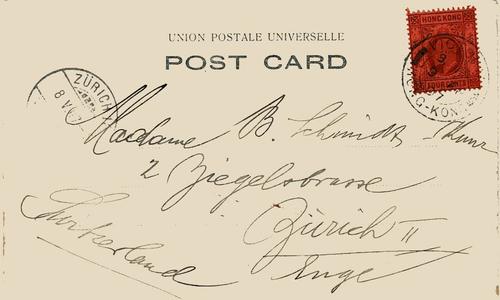 UNION POSTALE UNIVERSELLE
POST CARD
HONG KONG
FOUR CENTS
VICTO
HONG-KONG
ZÜRICH
8 V
Madame B. Schmidt-Kunz
2 Ziegelstrasse
Zürich II
Enge
Switzerland